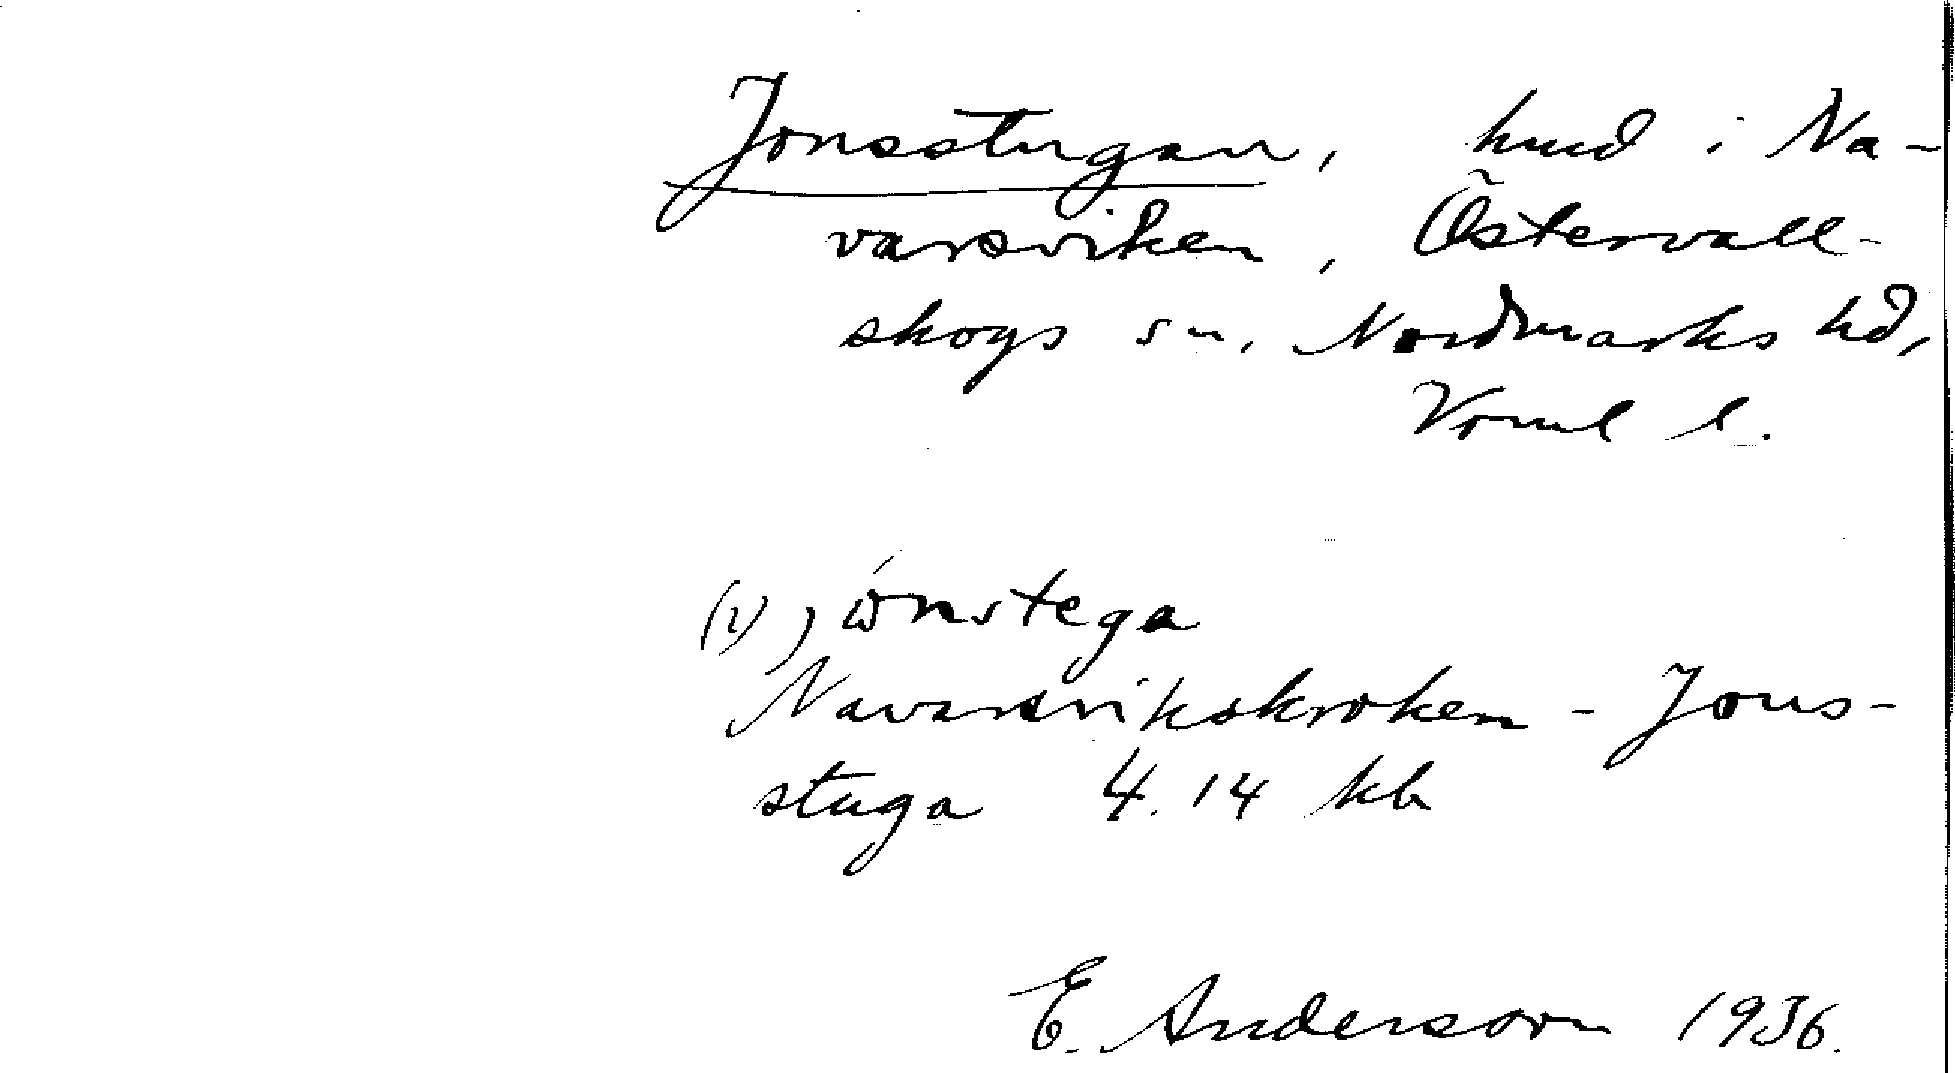 Jonsstugan, hmd i Na-
varsviken, Östervall-
skogs sn, Nordmarks hd,
Vrml l.
(i)
Navarsvikskroken - Jons-
stuga 4.14 kb
E. Anderson 1936.